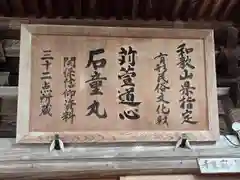 和歌山県指定
有形民俗文化財
苅萱道心
石童丸
関係信仰資料
三十二点所蔵